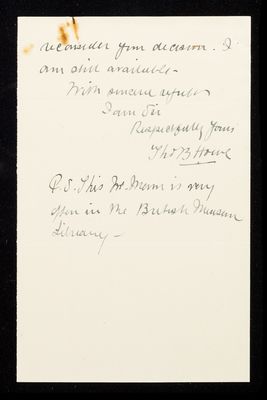 reconsider your decision. I
am still available -
With sincere
I am Sir
Respectfully Yours
Thos B Howe
P.S. This Mr. Mann is very
often in the British Museum
Library -